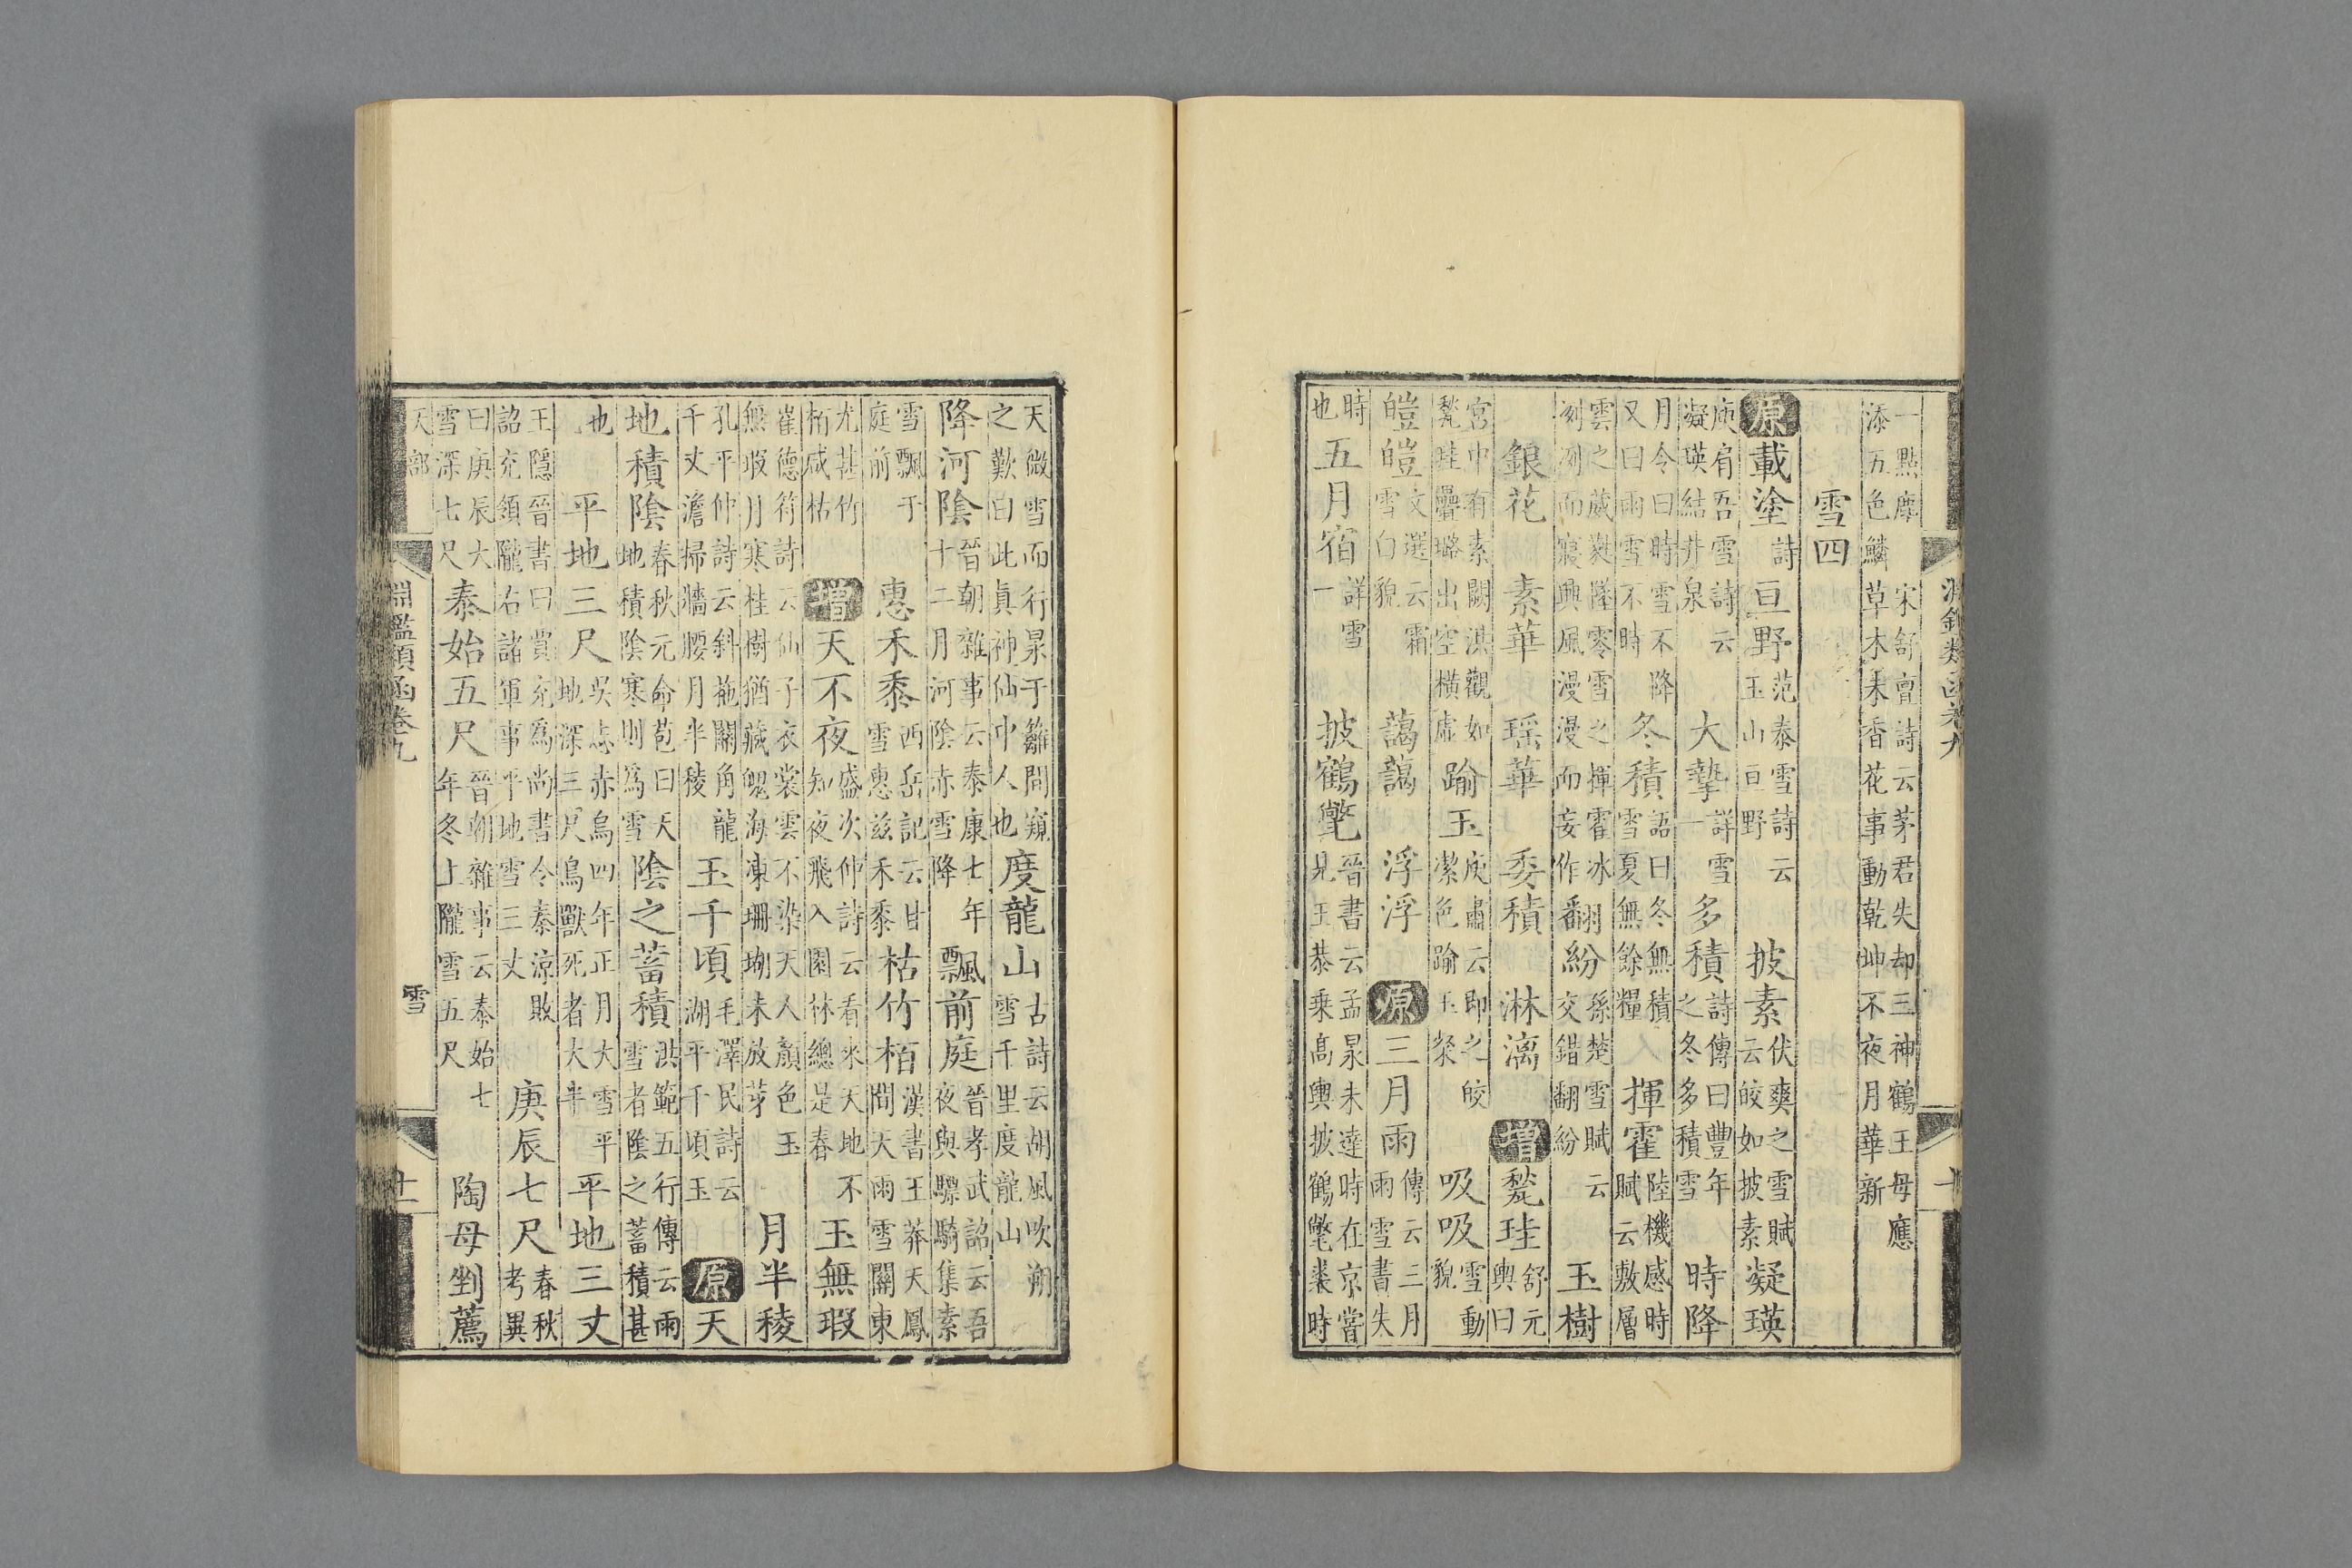 一點塵添五色鱗宋舒亶詩云茅君失却三神鶴王母應草木未香花事動乾坤不夜月華新
雪四
原載塗詩亘野范泰雪詩云玉山亘野披素伏奭之雪賦云皎如披素凝瑛
庾肩吾雪詩云凝瑛結井泉大摯詳雪一多積詩傳曰豐年之冬多積雪時降
月令曰時雪不降又曰雨雪不時冬積語曰冬無積雪夏無餘糧揮霍陸機感時賦云敷層
雲之葳蕤隆零雪之揮霍冰冽冽而寢興風漫漫而妄作翻紛孫楚雪賦云交錯翻紛玉樹
銀花素華瑶華委積淋漓增甃珪舒元輿曰
宮中有素闕淇觀如甃珪疊璐出空橫虛踰玉庾肅云即之皎潔色踰玉粲吸吸雪動貌
皚皚文選云霜雪白貌藹藹浮浮原三月雨傳云三月雨雪書失
時也五月宿詳雪一披鶴氅晉書云孟昶未達時在京嘗見王恭乗高輿披鶴氅裘時
天微雪而行昶于籬間窺之歎曰此真神仙中人也度龍山古詩云胡風吹朔雪千里度龍山
降河陰晉朝雜事云泰康七年十二月河陰赤雪降飄前庭晉孝武詔云吾夜與驃騎集素
雪飄于庭前惠禾黍西岳記云甘雪惠兹禾黍枯竹栢漢書王莽天鳳間天雨雪關東
尤甚竹栢咸枯增天不夜盛次仲詩云看來天地不知夜飛入園林總是春玉無瑕
崔德符詩云仙子衣裳雲不染天人顏色玉無瑕月寒桂樹猶藏魄海凍珊瑚未放芽月半稜
孔平仲詩云斜拖闕角龍千丈澹掃牆腰月半稜玉千頃毛澤民詩云湖平千頃玉原天
地積陰春秋元命苞曰天地積陰寒則為雪陰之蓄積洪範五行傳云雨雪者陰之蓄積甚
也平地三尺吳志赤烏四年正月大雪平地深三尺鳥獸死者大半平地三丈
王隱晉書曰賈充為尚書令秦涼敗詔充領隴右諸軍事平地雪三丈庚辰七尺春秋考異
曰庚辰大雪深七尺泰始五尺晉朝雜事云泰始七年冬上隴雪五尺陶母剉薦
天部
淵鑑類函卷九
雪
十一